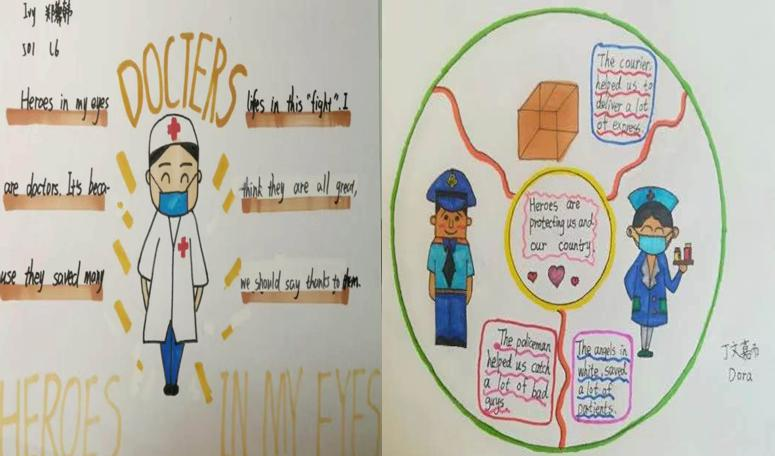 Ivy
501 L6
DOCTERS
Heroes in my eyes
are doctors. It's beca-
use they saved many
lifes in this "fight". I
think they are all great,
we should say thanks to them.
HEROES IN MY EYES
The courier
helped us to
deliver a lot
of express.
Heroes are
protecting us and
our country.
The policeman
helped us catch
a lot of bad
guys.
The angels in
white saved
a lot of
patients.
丁文嘉
Dora